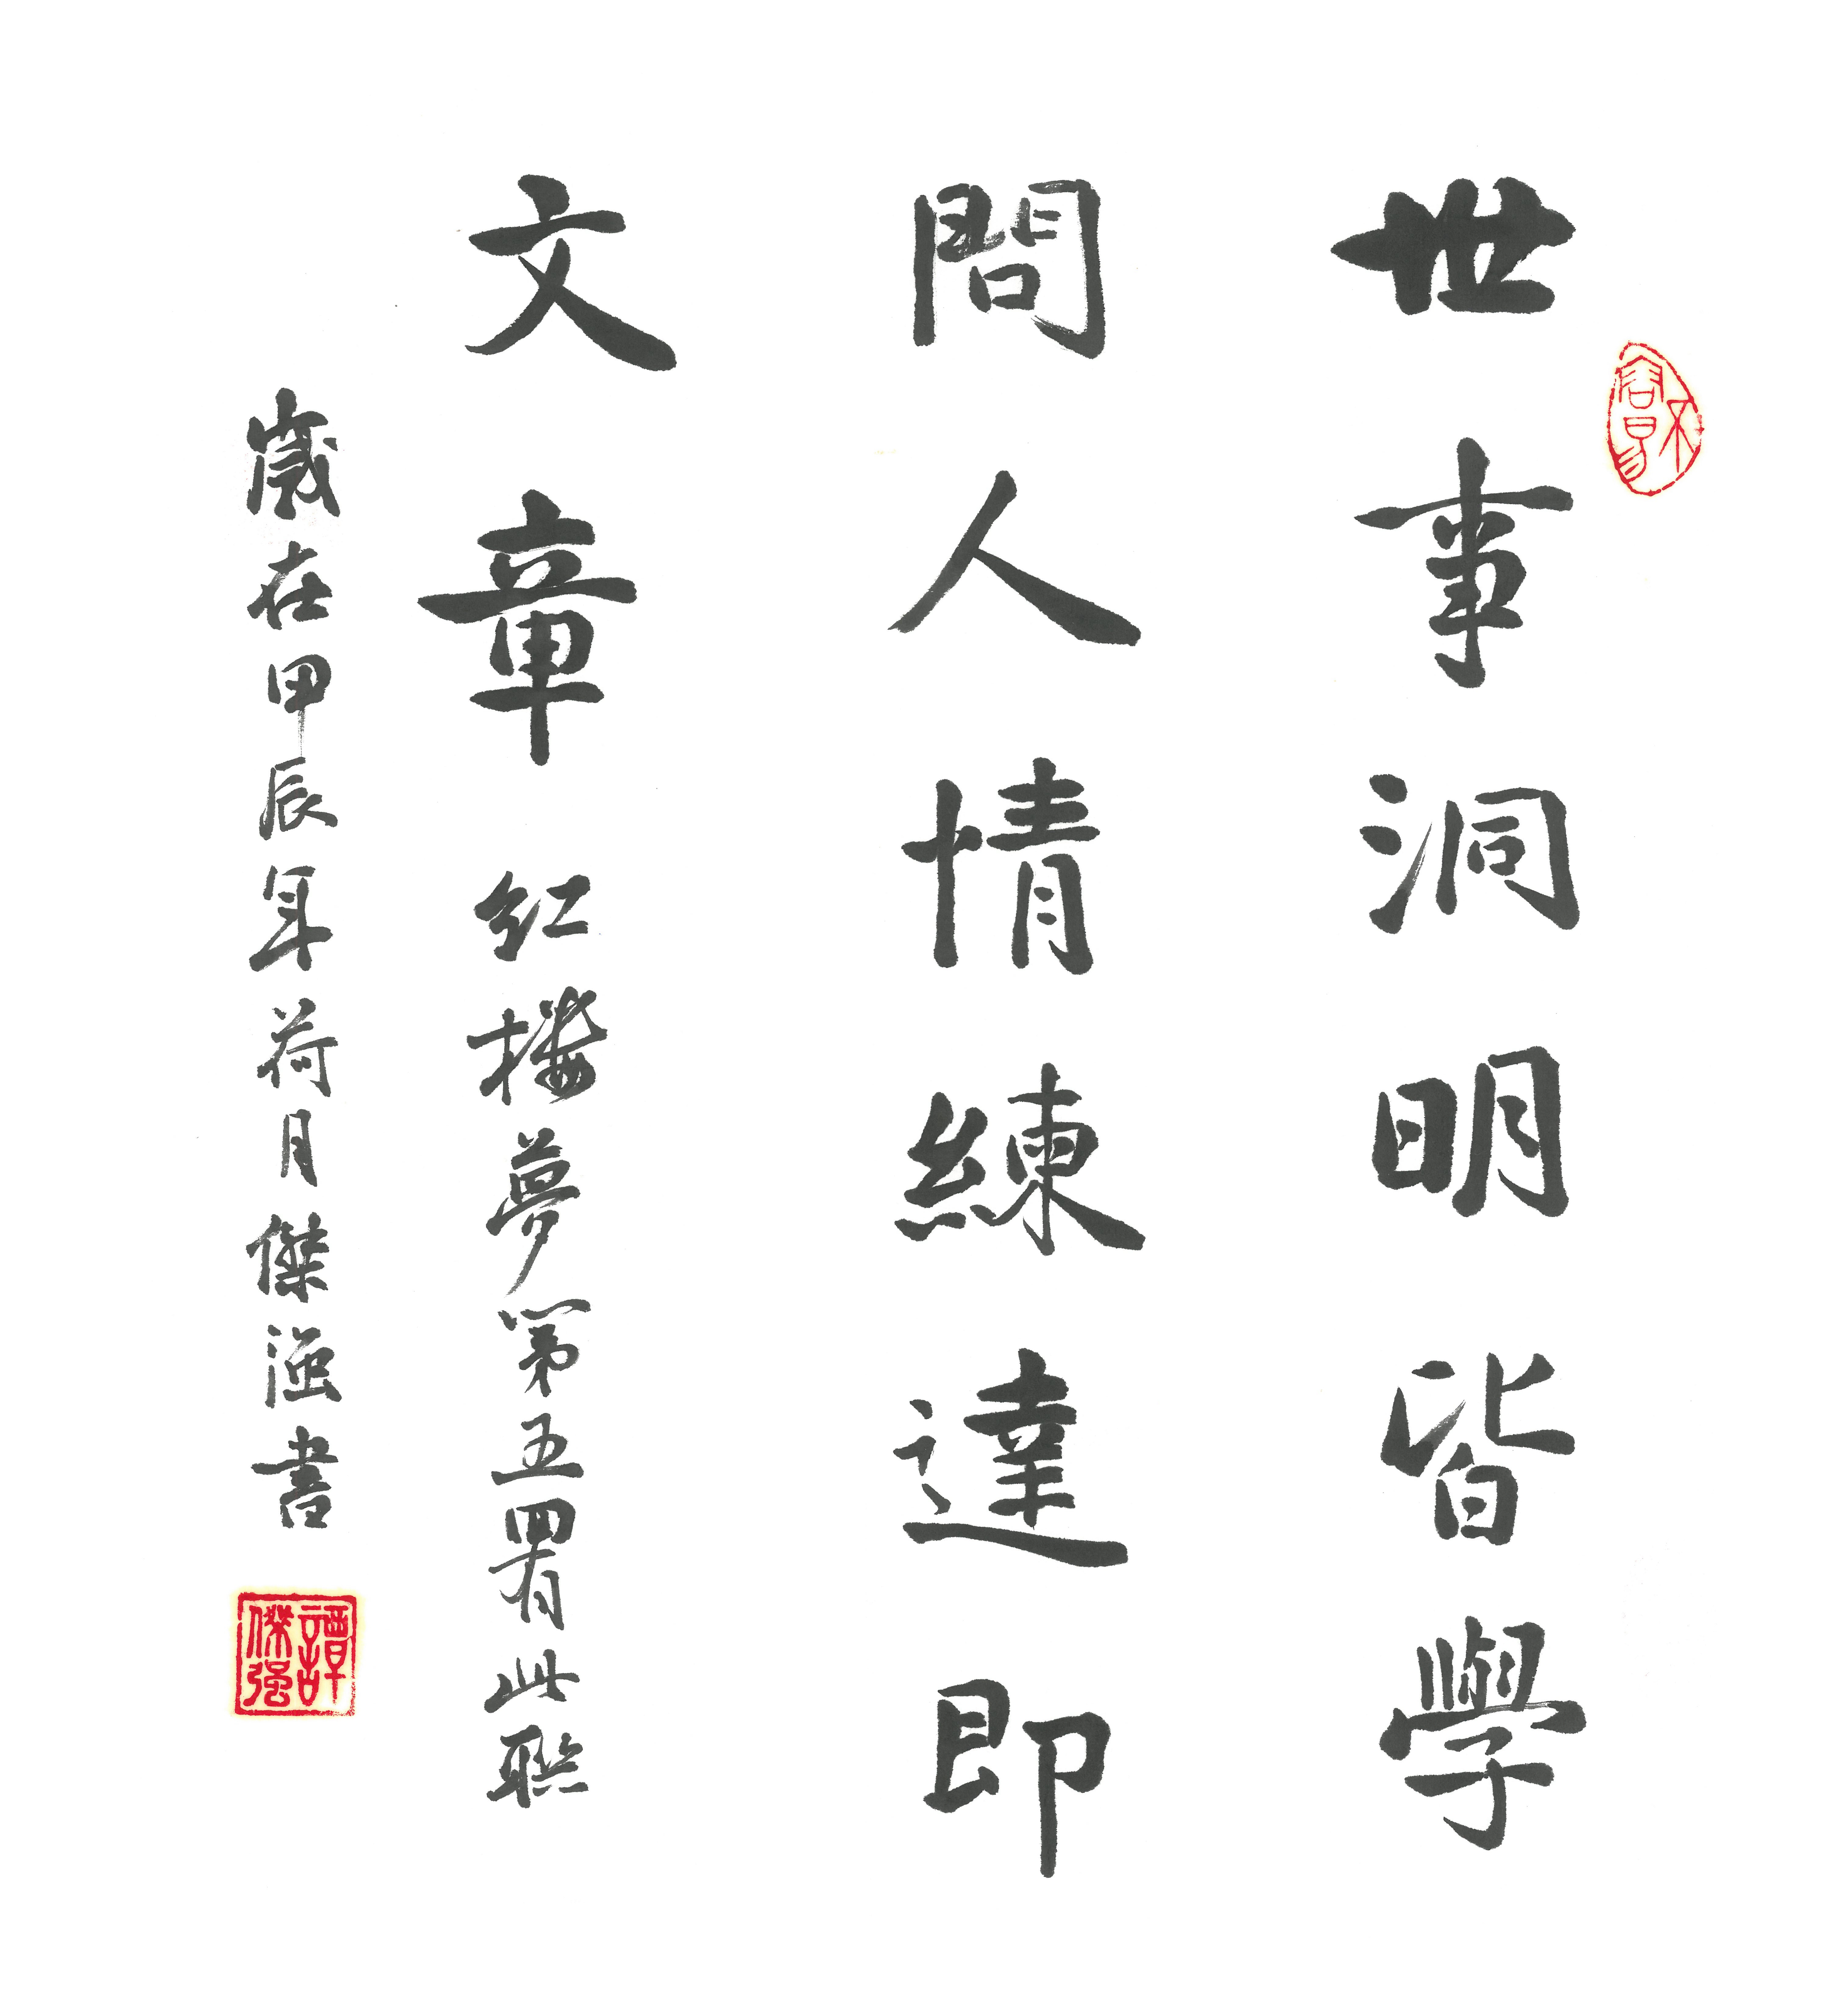 世事洞明皆學
問人情練達即
文章 紅樓夢第五回有此聯
歲在甲辰年荷月傑強書
譚傑强